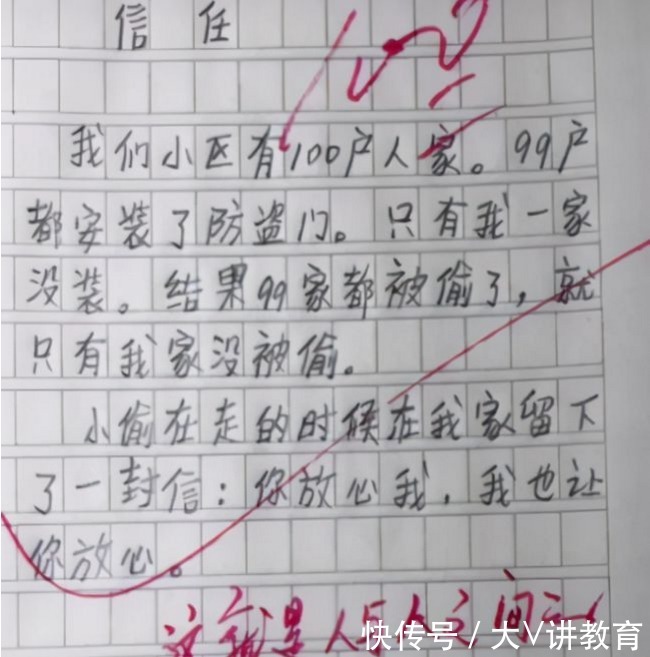 信任
100
我们小区有100户人家。99户
都安装了防盗门。只有我一家
没装。结果99家都被偷了，就
只有我家没被偷。
小偷在走的时候在我家留下
了一封信：你放心我，我也让
你放心。
这就是人与人之间
快传号/大V讲教育